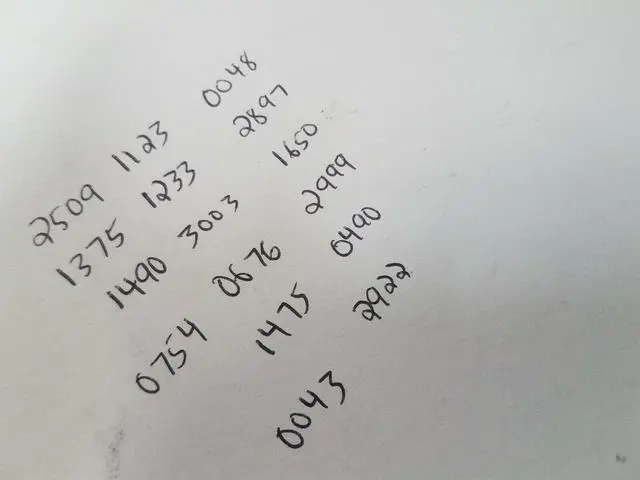 2509 1123 0048
1375 1233 2897
1490 3003 1650
0754 0676 2999
1475 0490
0043 2922